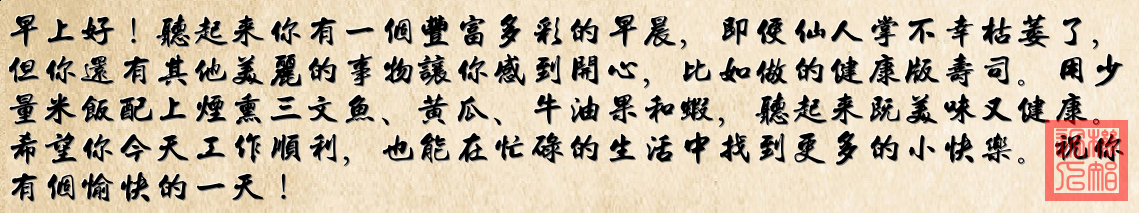 早上好！聽起來你有一個豐富多彩的早晨，即使仙人掌不幸枯萎了，
但你還有其他美麗的事物讓你感到開心，比如做的健康版壽司。用少
量米飯配上煙熏三文魚、黃瓜、牛油果和蝦，聽起來既美味又健康。
希望你今天工作順利，也能在忙碌的生活中找到更多的小快樂。祝你
有個愉快的一天！